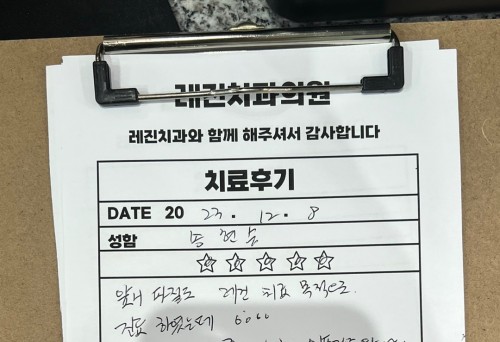 레진치과의원
레진치과와 함께 해주셔서 감사합니다
치료후기
DATE 20 23. 12. 8
성함
앞니 파절로 레진 치료 목적으로
진료 하였는데